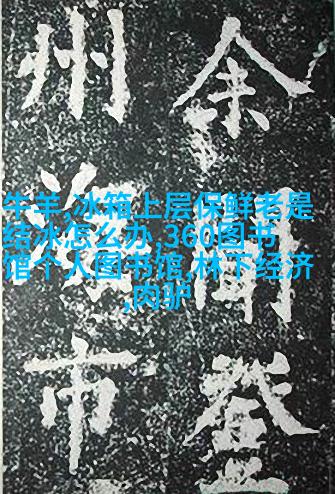 余聞登
州海市
牛羊,冰箱上层保鲜老是
结冰怎么办,360图书
馆个人图书馆,林下经济
,肉驴